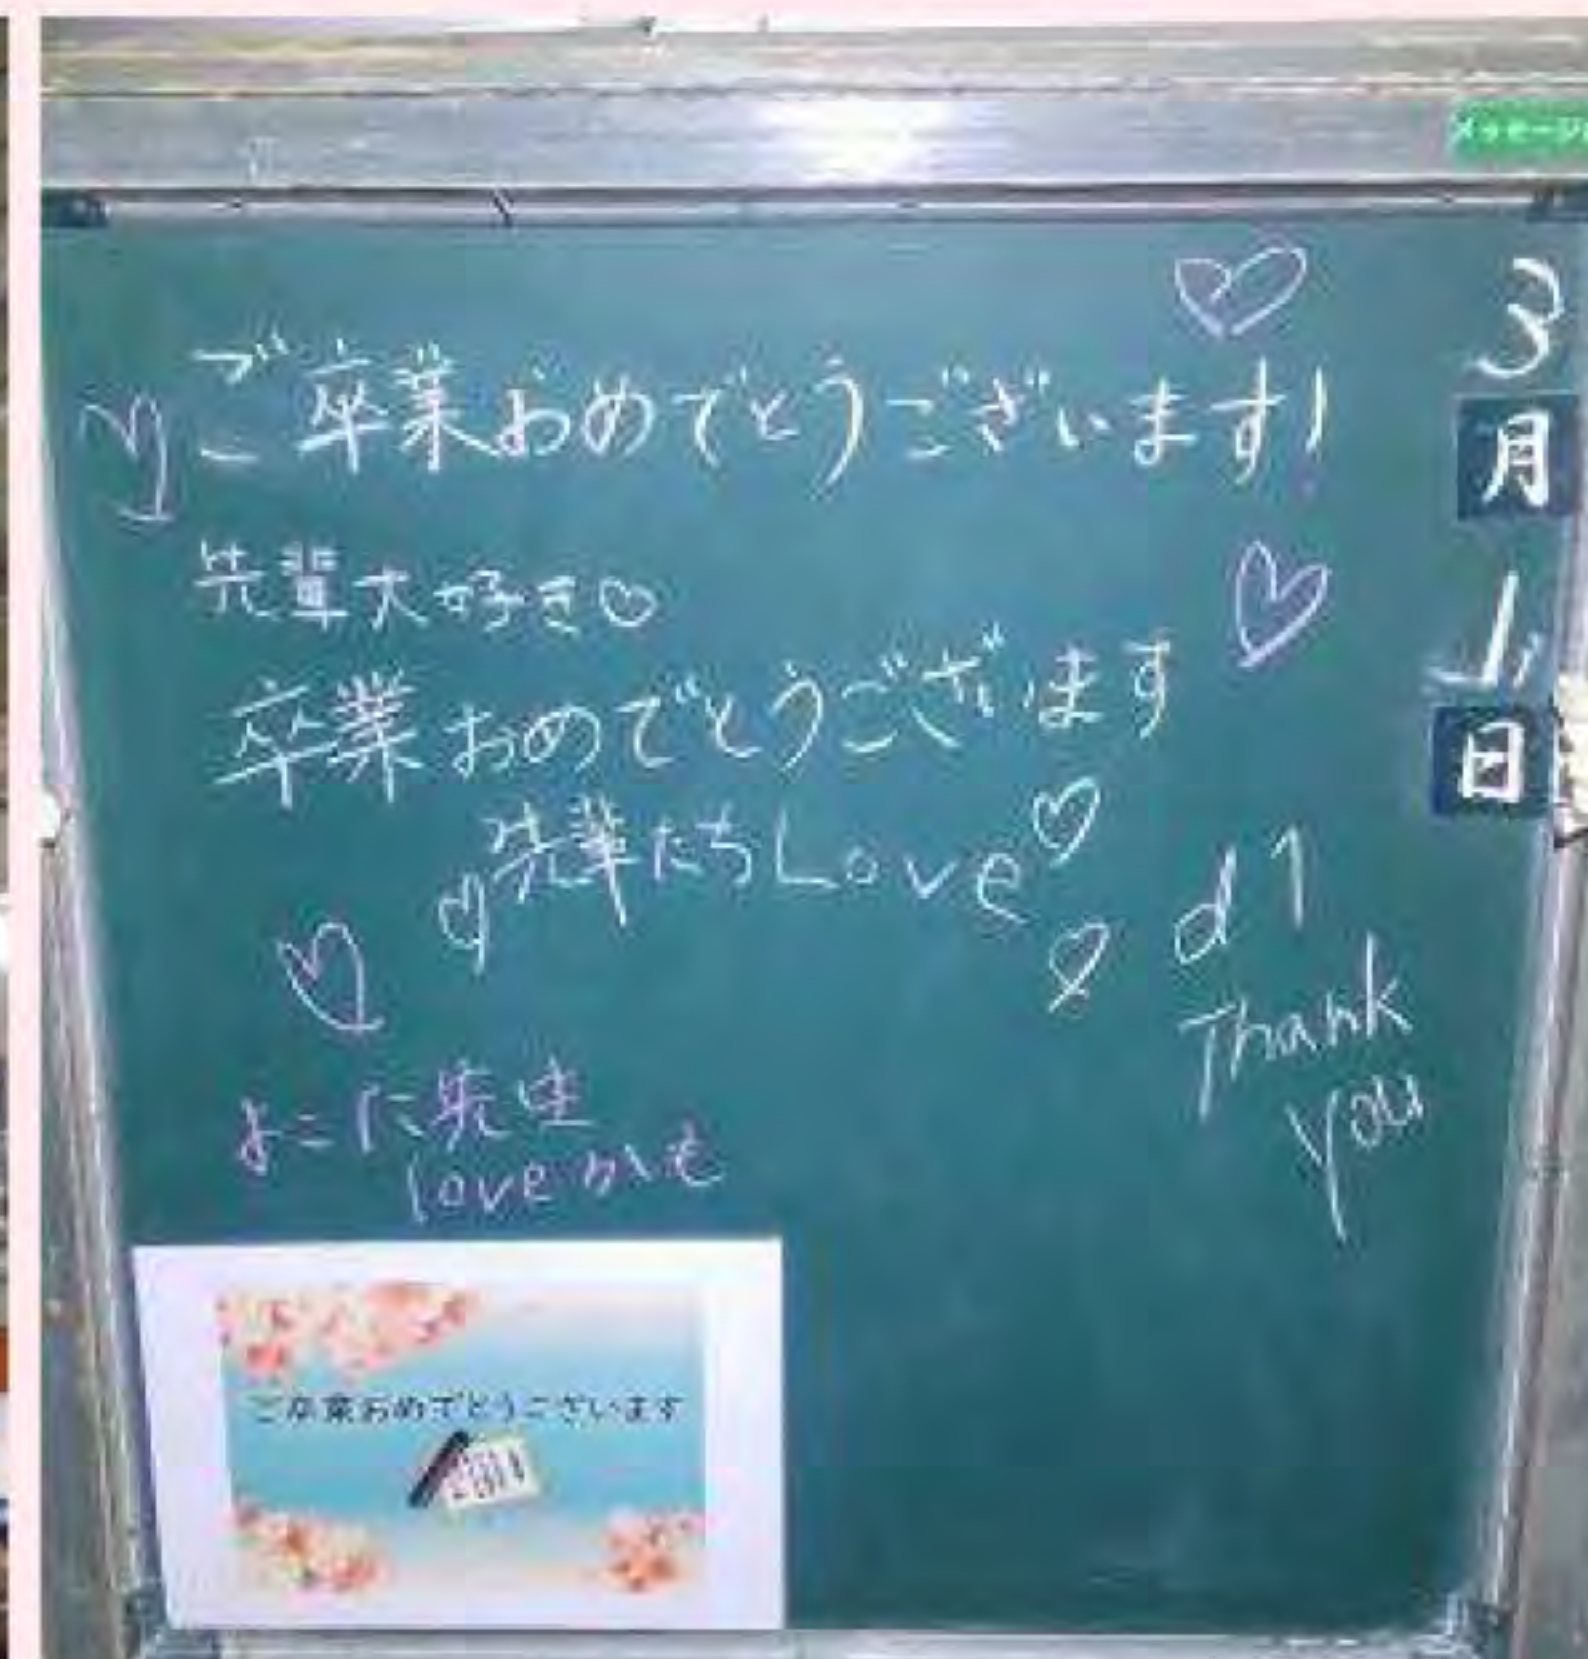 メッセージ
3
月
1
日
ご卒業おめでとうございます!
先輩大好き♡
卒業おめでとうございます
先輩たちLove♡
d1
Thank
you
よこに先生
loveかも
ご卒業おめでとうございます